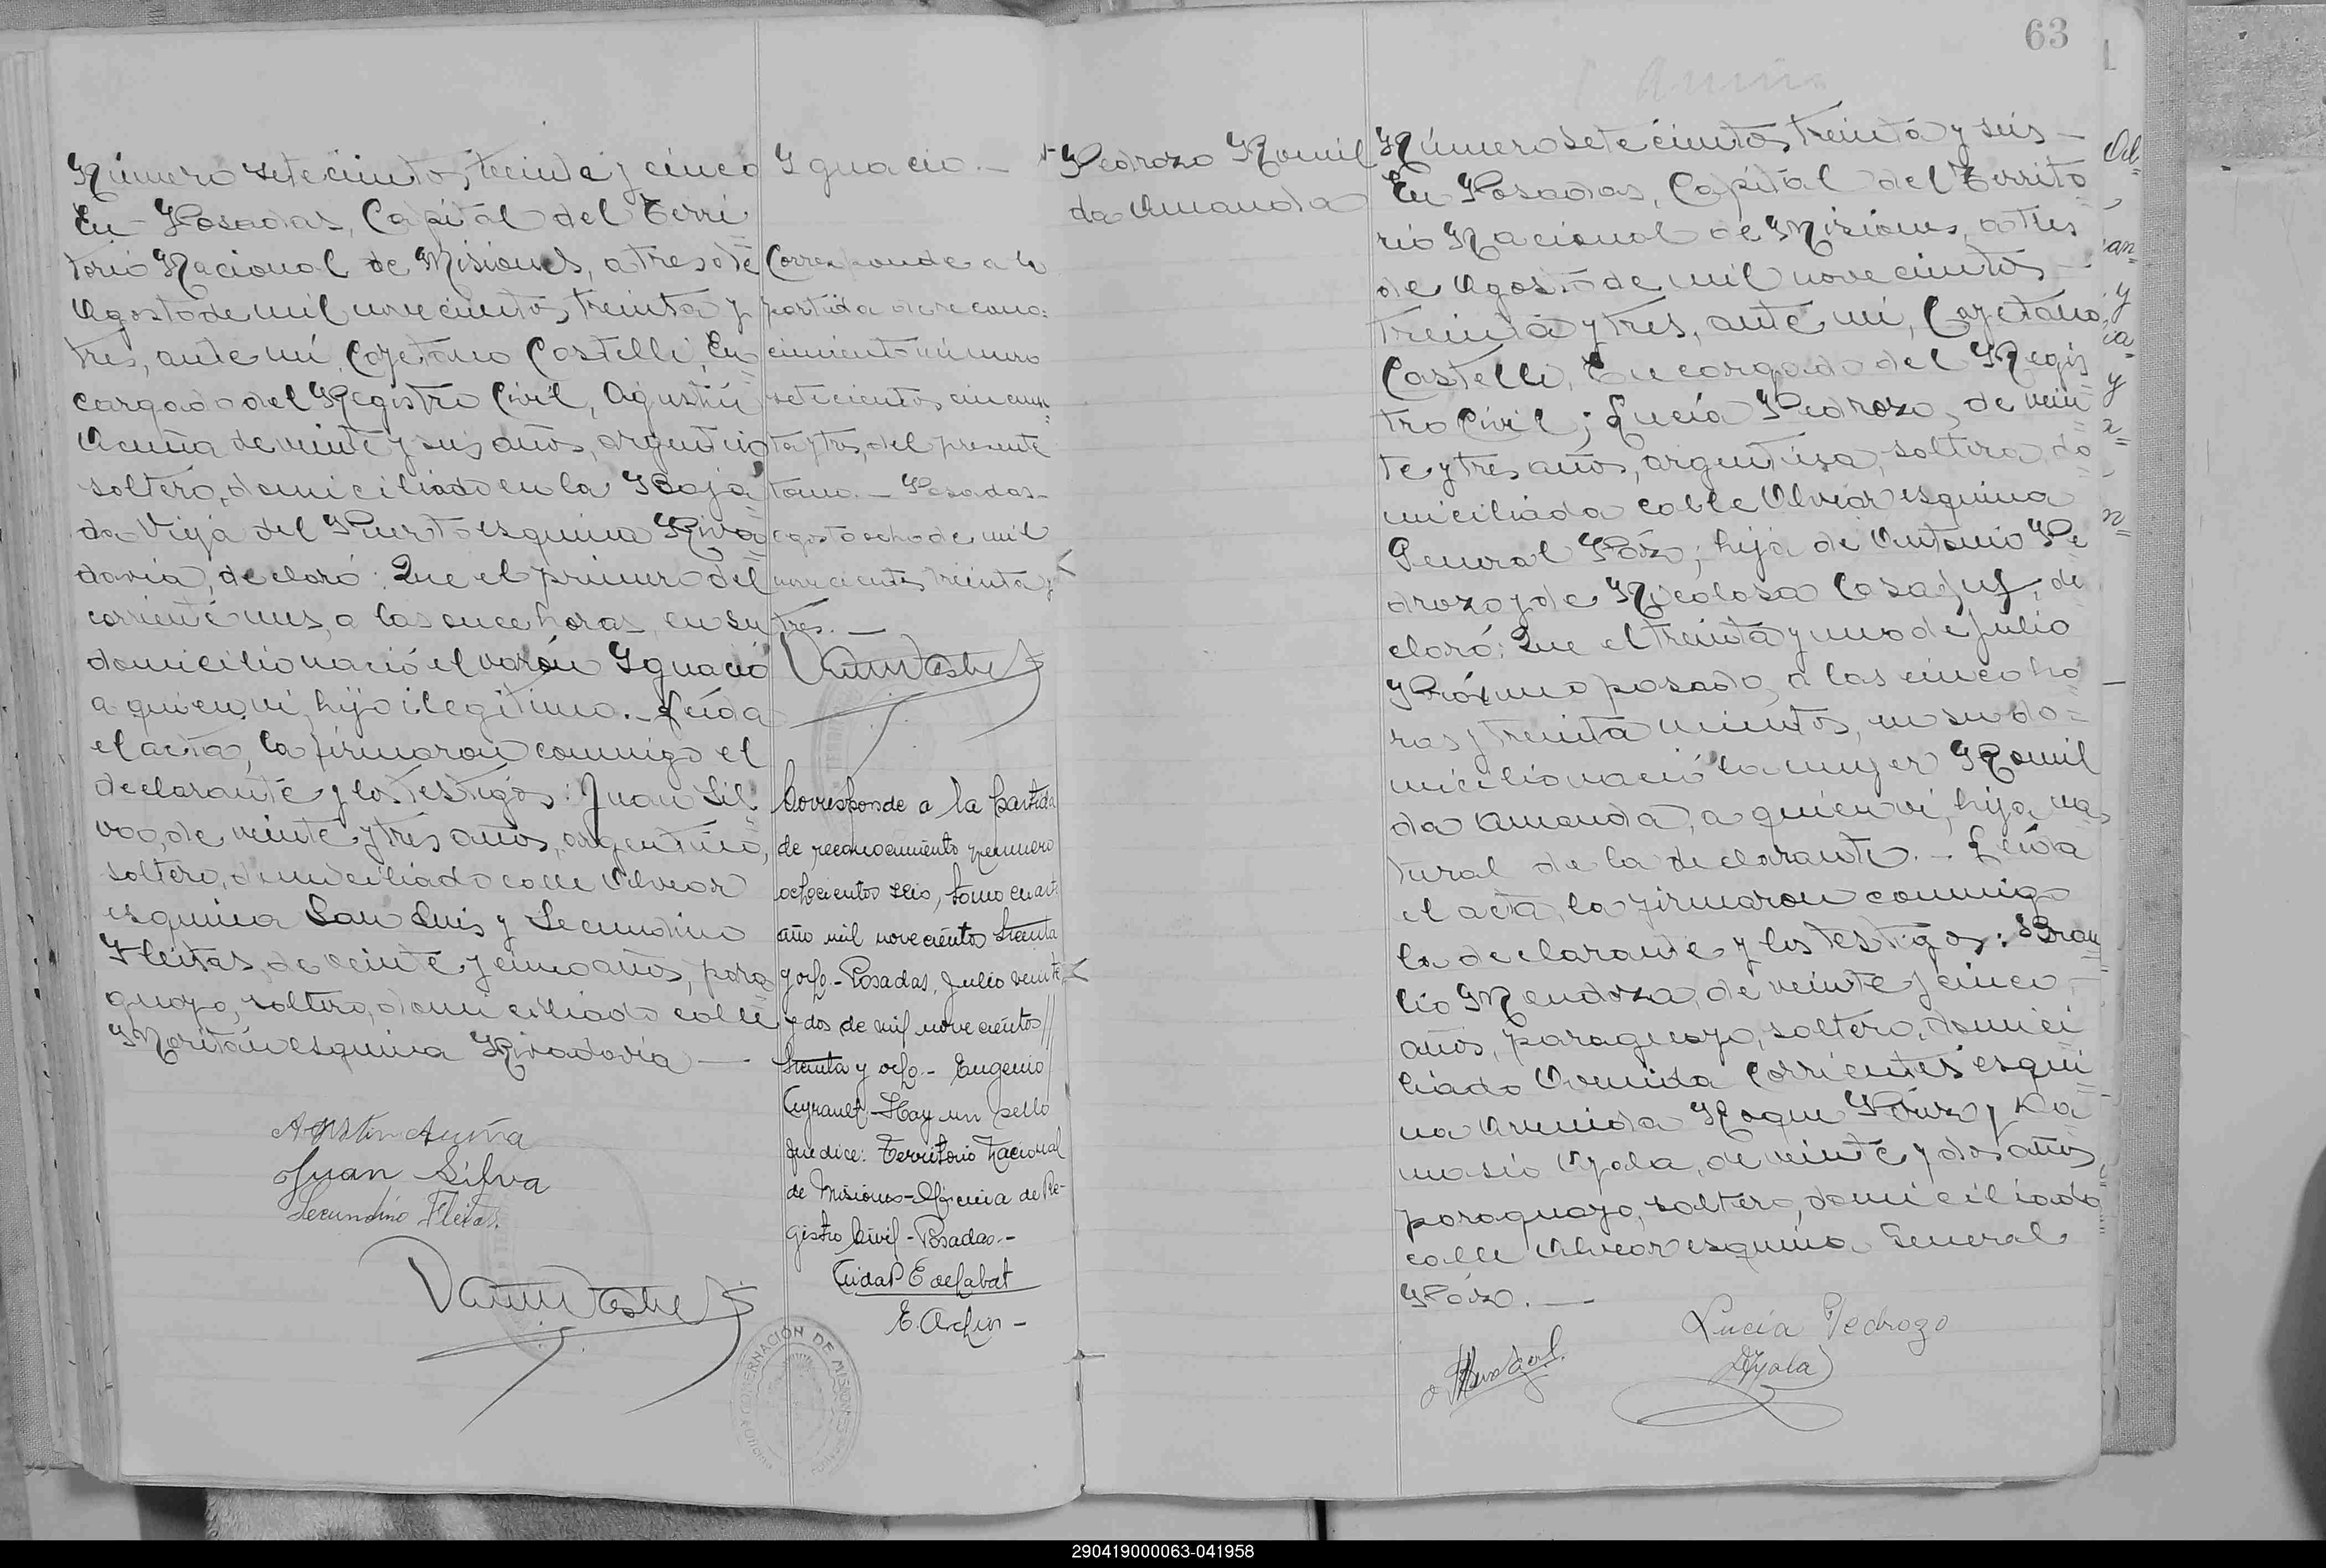 Número setecientos, treinta y cinco
En Posadas, Capital del Terri
torio Nacional de Misiones, a tres de
Agosto de mil novecientos, treinta y
tres, ante mí, Cayetano Castelli, En
cargado del Registro Civil, Agustín
Acuña de veinte y seis años, argentino
soltero, domiciliado en la Baja
da Vieja del Puerto esquina Riva
davia, declaró: Que el primero del
corriente mes, a las once horas, en su
domicilio nació el varón Ignacio
a quien vi, hijo ilegitimo. - Leída
el acta, la firmaron conmigo el
declarante y los testigos: Juan Sil
va, de veinte y tres años, argentino,
soltero, domiciliado calle Alvear
esquina San Luis y Secundino
Fleitas, de veinte y cinco años, para
guayo, soltero, domiciliado calle
esquina Rivadavia —
Agustin Acuña
Juan Silva
Secundino Fleitas
Ignacio. -
Corresponde a la
partida de recono=
cimiento número
setecientos cincuen=
ta y tres, del presente
tomo. - Posadas-
agosto ocho de mil
novecientos treinta y
tres. —
Corresponde a la partida
de reconocimiento número
ochocientos seis, tomo cuarto
año mil novecientos treinta
y ocho.- Posadas, Julio veinte
y dos de mil novecientos
treinta y ocho.- Eugenio
Hay un sello
que dice: Territorio Nacional
de Misiones - Oficina de Re-
gistro Civil - Posadas.-
E. Archivo -
GOBERNACIÓN DE MISIONES
63
Pedrozo Romil
da Amanda
Número setecientos, treinta y seis —
En Posadas, Capital del Territo
rio Nacional de Misiones, a tres
de Agosto de mil novecientos —
treinta y tres, ante mí, Cayetano
Castelli, Encargado del Regis
tro Civil; Lucía Pedrozo, de vein
te y tres años, argentina, soltera, do
miciliada calle Alvear esquina
General Páz; hija de Antonio Pe
drozo y de Nicolasa Casajus, de
claró: Que el treinta y uno de Julio
Próximo pasado, a las cinco ho
ras y treinta minutos, en su do=
micilio nació la mujer Romil
da Amanda, a quien vi, hija na
tural de la declarante. - Leída
el acta, la firmaron conmigo
la declarante y los testigos: Brau
lio Mendoza, de veinte y cinco
años, paraguayo, soltero, domici
liado Avenida Corrientes esqui
na Avenida Roque Pérez y Da
masio Ayala, de veinte y dos años
paraguayo, soltero, domiciliado
calle Alvear esquina General
Páz. —
Lucia Pedrozo
DAyala
290419000063-041958